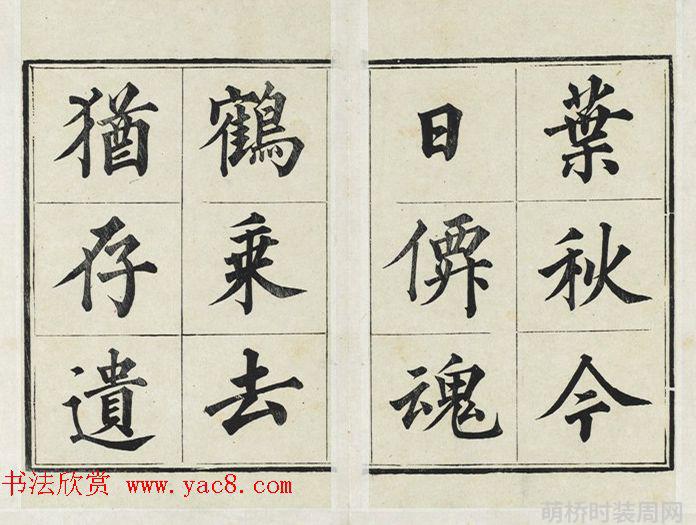 葉秋今
日僊魂
鶴乗去
猶存遺
书法欣赏 www.yac8.com
萌桥时装周网